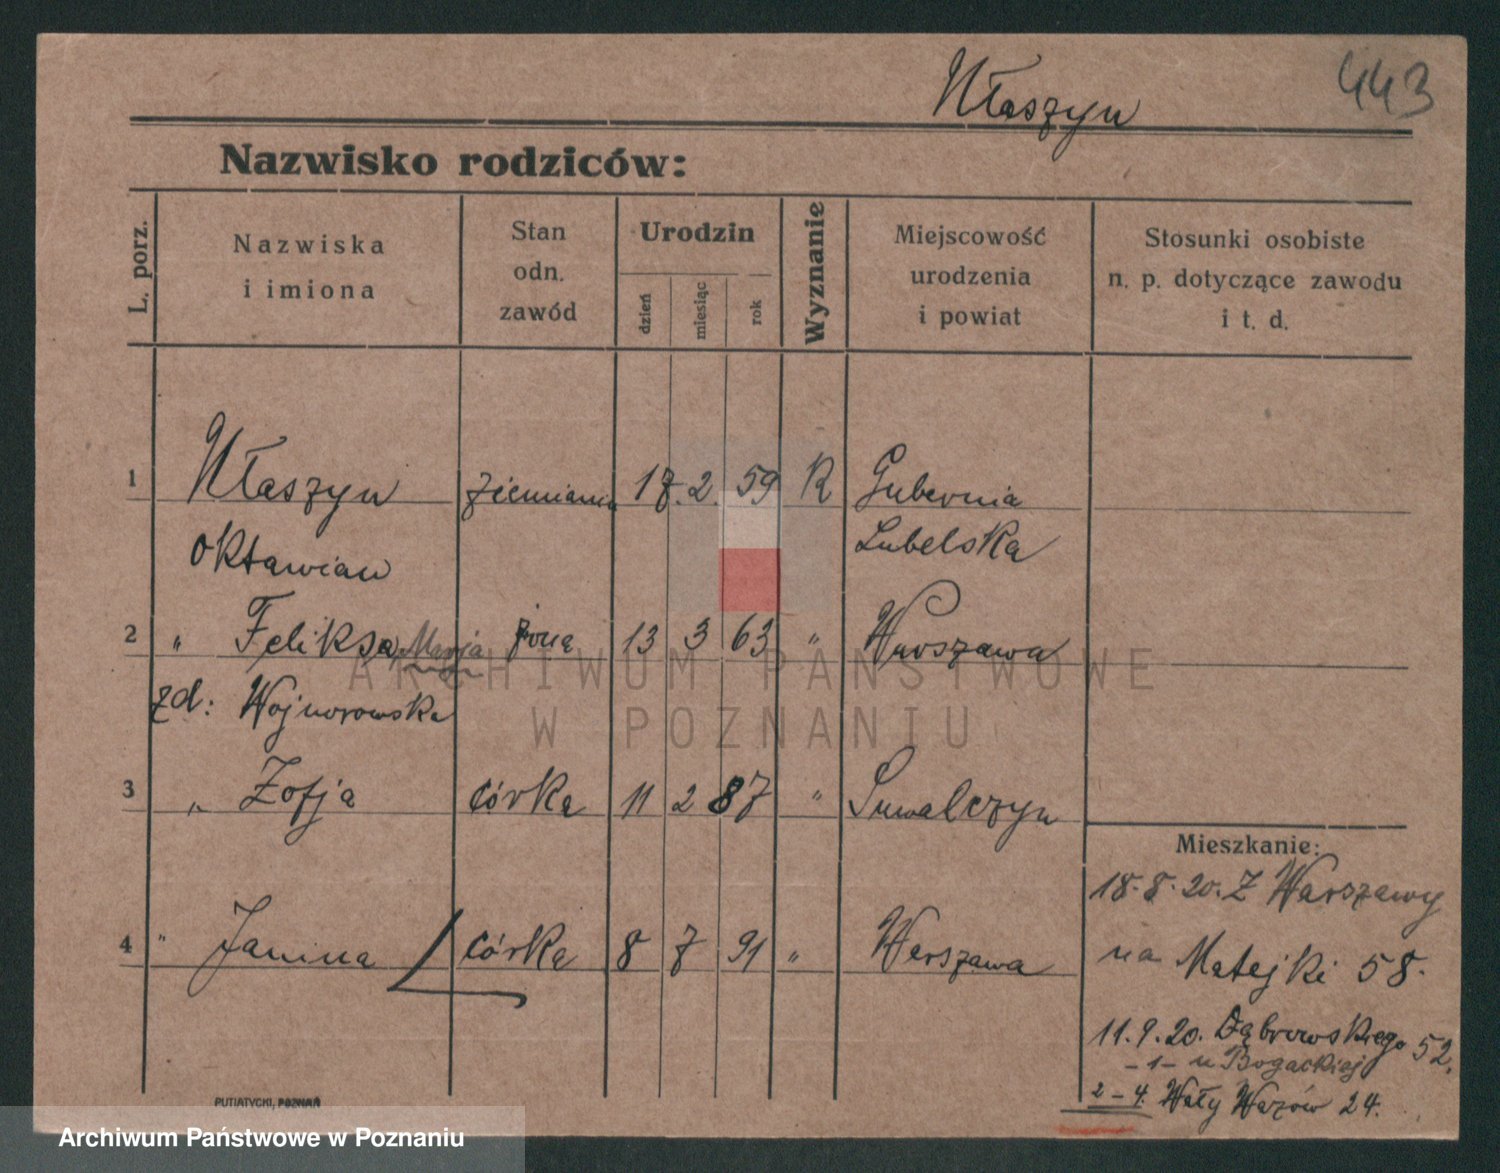 Właszyn 443
Nazwisko rodziców:
L. porz.
Nazwiska
i imiona
Stan
odn.
zawód
Urodzin
dzień
miesiąc
rok
Wyznanie
Miejscowość
urodzenia
i powiat
Stosunki osobiste
n. p. dotyczące zawodu
i t. d.
1 Właszyn ziemianin 17. 2. 59 R Gubernia
Oktawian Lubelska
2 " Feliksa Marja żona 13 3 63 " Warszawa
zd: Wojnorowska
3 " Zofja córka 11 2 87 " Suwalczyn
Mieszkanie:
18.8.20. Z Warszawy
4 " Janina córka 8 7 91 " Warszawa
na Matejki 58.
11.9.20. Dąbrowskiego 52.
-1- u Bogackiej
2-4. Wały Wazów 24.
PUTIATYCKI, POZNAŃ
ARCHIWUM PAŃSTWOWE
W POZNANIU
Archiwum Państwowe w Poznaniu